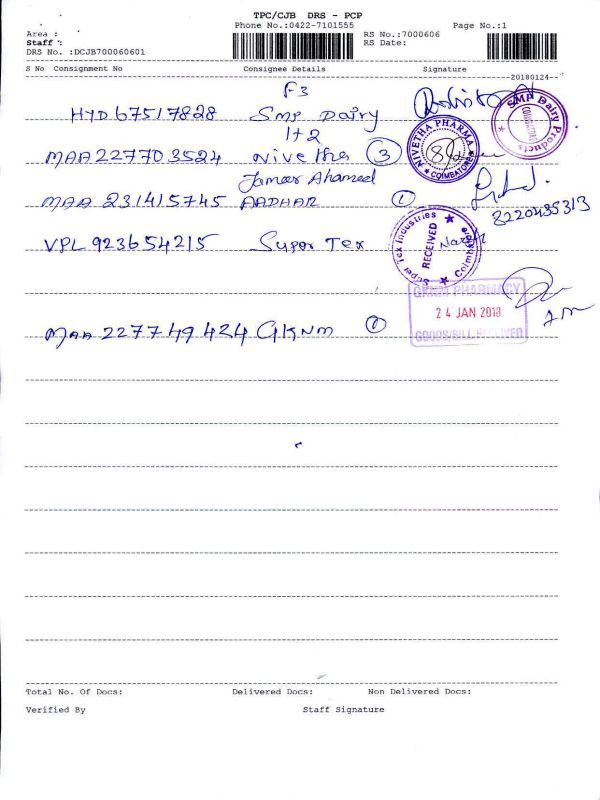 TPC/CJB DRS - PCP
Phone No.:0422-7101555 Page No.:1
Area : RS No.:7000606
Staff : RS Date:
DRS No. :DCJB700060601
S No Consignment No Consignee Details Signature
20180124
F3
HYD 67517828 SMP Dairy
SMP Dairy Products
COIMBATORE
1+2
MAA 227703524 Nivetha 3
NIVETHA PHARMA
COIMBATORE
Jameer Ahameed
MAA 231415745 AADHAR 1
8220435313
VPL 923654215 Super Tex
Super Tex Industries
RECEIVED
Coimbatore
GKNM PHARMACY
24 JAN 2018
GOODS/BILL RECEIVED
MAA 227749424 GKNM
Total No. Of Docs: Delivered Docs: Non Delivered Docs:
Verified By Staff Signature